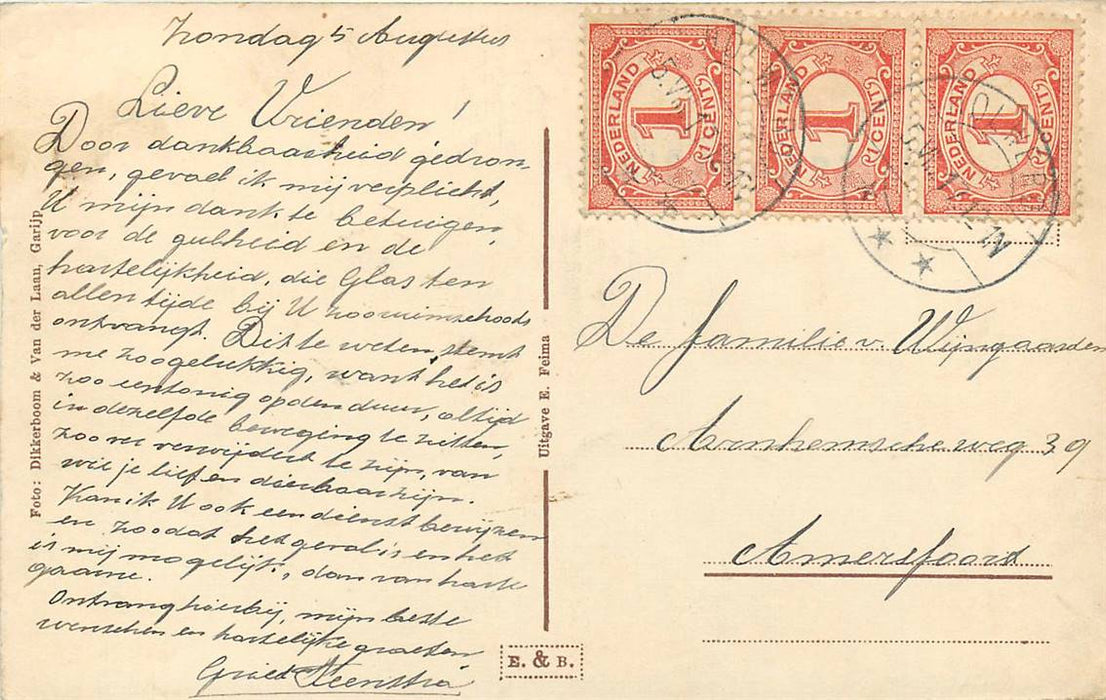 Zondag 5 Augustus
Lieve Vrienden!
Door dankbaarheid gedron-
gen, gevoel ik mij verplicht,
U mijn dank te betuigen,
voor de gulheid en de
hartelijkheid, die Glas ten
allen tijde bij U zoo ruimschoots
ontvangt. Dit te weten, stemt
me zoo gelukkig, want het is
zoo eentonig op den duur, altijd
in dezelfde beweging te zitten,
zoo ver verwijdert te zijn, van
wie je lief en dierbaar zijn.
Kan ik U ook een dienst bewijzen
en zoodat het geval is en het
is mij mogelijk, dan van harte
gaarne.
Ontvang hierbij, mijn beste
wenschen en hartelijke groeten
Griet Veenstra
Foto: Dikkerboom & Van der Laan, Garijp
Uitgave E. Feima
E. & B.
NEDERLAND 1 1 CENT
NEDERLAND 1 1 CENT
NEDERLAND 1 1 CENT
De familie v. Wijngaarden
Arnhemscheweg 39
Amersfoort